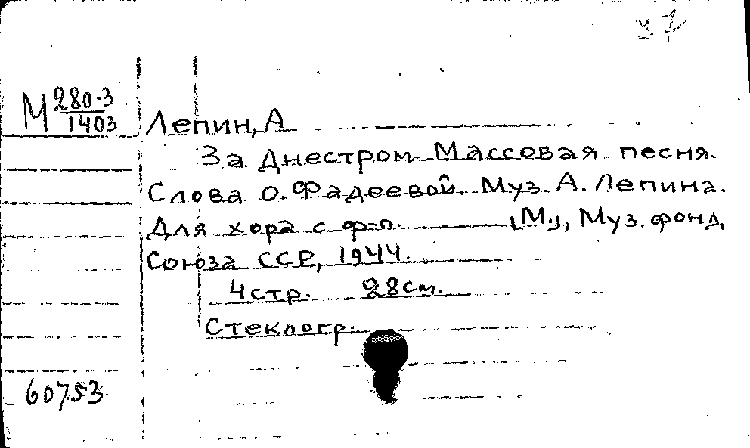 М 280-3
1403
Лепин, А
За Днестром Массовая песня.
Слова О. Фадеевой. Муз. А. Лепина.
Для хора с ф-п. [М.], Муз. фонд,
Союза ССР, 1944.
4 стр. 28 см.
Стеклогр.
60753